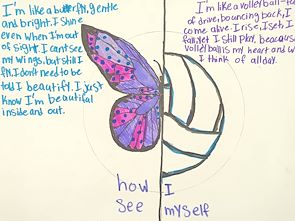 I'm like a butterfly, gentle
and bright. I Shine
even when I'm out
of sight. I cant see
my wings, but still I
fly. I don't need to be
told I beautiful. I just
know I'm beautiful
inside and out.
I'm like a volleyball-
of drive, bouncing back, I
come alive. I rise, I set, I
fall, yet I still play. because
volleyball is my heart and w
I think of all day.
how I
see myself